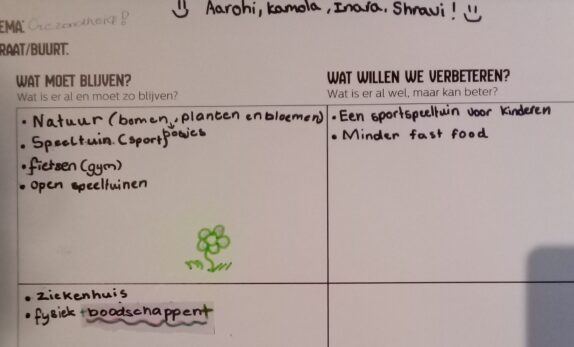 Aarohi, Kamola, Inara, Shravi!
EMA: Gezondheid!
RAAT/BUURT.
WAT MOET BLIJVEN?
Wat is er al en moet zo blijven?
• Natuur (bomen, planten en bloemen)
bosjes
• Speeltuin (sport)
• fietsen (gym)
• open speeltuinen
• ziekenhuis
• fysiek boodschappen
WAT WILLEN WE VERBETEREN?
Wat is er al wel, maar kan beter?
• Een sportspeeltuin voor kinderen
• Minder fast food